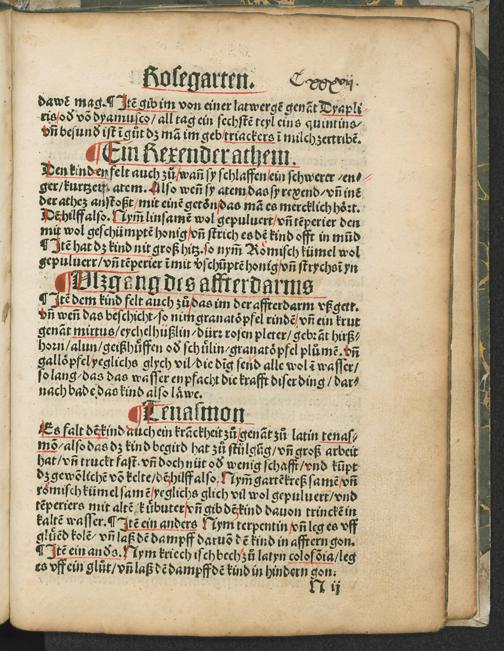 Rosegarten.
Cxxxvij.
dawē mag. ¶ Jtē gib im von einer latwergē genāt Dyapli
ris/od võ dyamusco/all tag ein sechstē teyl eins quintins-
vñ besund ist ī gůt dz mā im geb triackers ī milch zertribē.
Ein Rexender athem.
Den kinden felt auch zů/wañ sy schlaffen/ein schwerer/en-
ger/kurzeth atem. Also weñ sy atem das sy rexend/vñ inē
der athez anstoßt/mit einē getōn/das mā es mercklich hört.
Dē hilff also. Nym linsamē wol gepuluert/vñ tēperier den
mit wol geschümptē honig/vñ strich es dē kind offt in mūd
¶ Jtē hat dz kind nit groß hitz. so nym Römisch kümel wol
gepuluert/vñ tēperier ī mit vschüptē honig/vñ strychs ī yn
Vszgang des affterdarms
¶ Jtē dem kind felt auch zů/das im der affterdarm vßgett.
vñ weñ das beschicht/so nim granatöpfel rindē/vñ ein krut
genāt mirtus/eychelhüßlin/dürr rosen pleter/gebrāt hirß-
horn/alun/geißhüffen od schülin/granatöpfel plůmē. Vñ
gallöpfel/yeglichs glych vil/die dīg send alle wol ē wasser/
so lang/das das wasser enpfacht die krafft diser ding/dar-
nach bade das kind also lāwe.
Tenasmon
Es falt dē kind auch ein kräckheit zů/genāt zů latin tenas-
mō/also das dz kind begird hat zů stůlgāg/vñ groß arbeit
hat/vñ truckt fast. vñ doch nüt od wenig schafft/vnd kūpt
dz gewölichē vō kelte/dē hilff also. Nym gartēkreß samē/vñ
römisch kümel samē/yeglichs glich vil wol gepuluert/vnd
tēperiers mit altē kübuter/vñ gib dē kind dauon trinckē in
kaltē wasser. ¶ Jtē ein anders Nym terpentin/vñ leg es vff
glüed kolē/vñ laß dē dampff daruō dē kind in afftern gon.
¶ Jtē ein anđs. Nym kriech isch bech/zů latyn colofōia/leg
es vff ein glüt/vñ laß dē dampff dē kind in hindern gon.
N ij